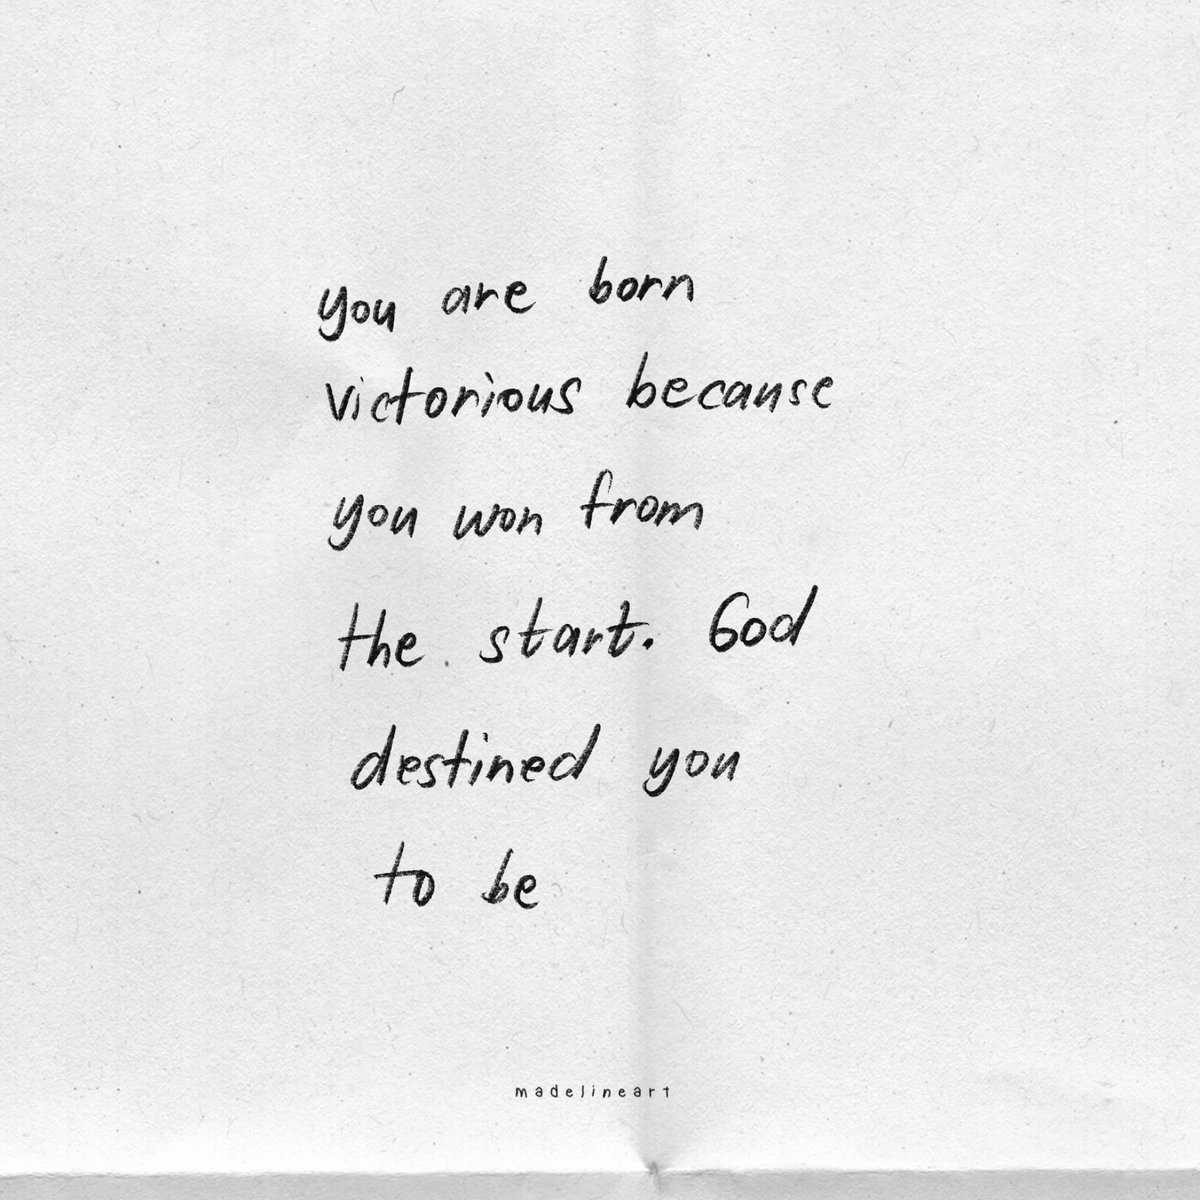 you are born
victorious because
you won from
the start. God
destined you
to be
madelineart